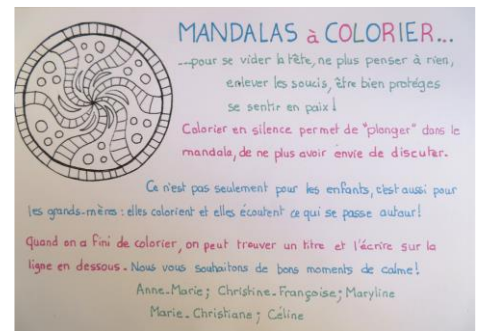 MANDALAS à COLORIER...
...pour se vider la tête, ne plus penser à rien,
enlever les soucis, être bien protégés
se sentir en paix!
Colorier en silence permet de "plonger" dans le
mandala, de ne plus avoir envie de discuter.
Ce n'est pas seulement pour les enfants, c'est aussi pour
les grands-mères : elles colorient et elles écoutent ce qui se passe autour!
Quand on a fini de colorier, on peut trouver un titre et l'écrire sur la
ligne en dessous. Nous vous souhaitons de bons moments de calme!
Anne-Marie ; Christine-Françoise ; Maryline
Marie-Christiane ; Céline